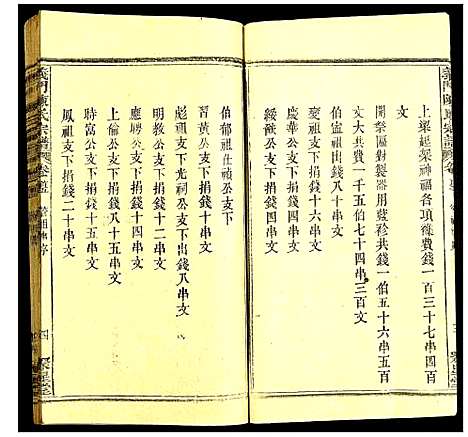 上梁起架神福各項雜費錢一百三十七串四百
文
開祭區對製器用藍袗共錢一伯五十六串五百
文大共一千五伯七十四串三百文
伯宣祖出錢八十串文
慶華公支下捐錢十六串文
綏獻公支下
伯郁祖仕祠公支下
習黃公支下
彪祖支下光祠公支下出錢八串文
明教公支下捐錢十二串文
應騁公支下捐錢四十串文
上倫公支下捐錢八十五串文
時富公支下捐錢三十串文
鳳祖支下捐錢二十串文
義門陳氏宗譜
四
聚星堂